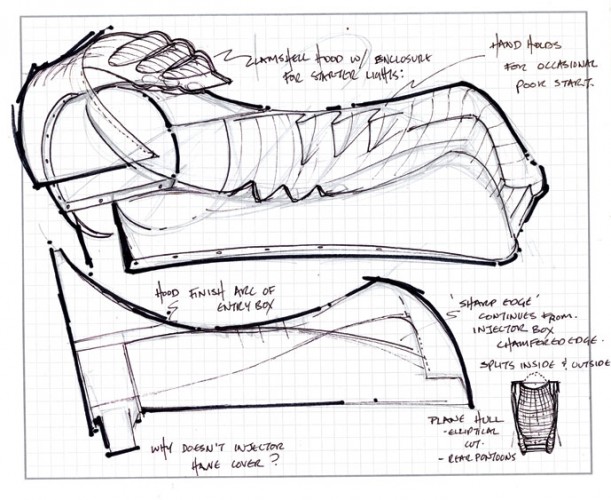 CLAMSHELL HOOD W/ ENCLOSURE
FOR STARTER LIGHTS:
HAND HOLDS
FOR OCCASIONAL
POOR START.
HOOD FINISH ARC OF
ENTRY BOX
'SHARP EDGE'
CONTINUES FROM.
INJECTOR BOX
CHAMFERED EDGE.
SPLITS INSIDE & OUTSIDE
PLANE HULL
- ELLIPTICAL
CUT.
- REAR PONTOONS
WHY DOESN'T INJECTOR
HAVE COVER?